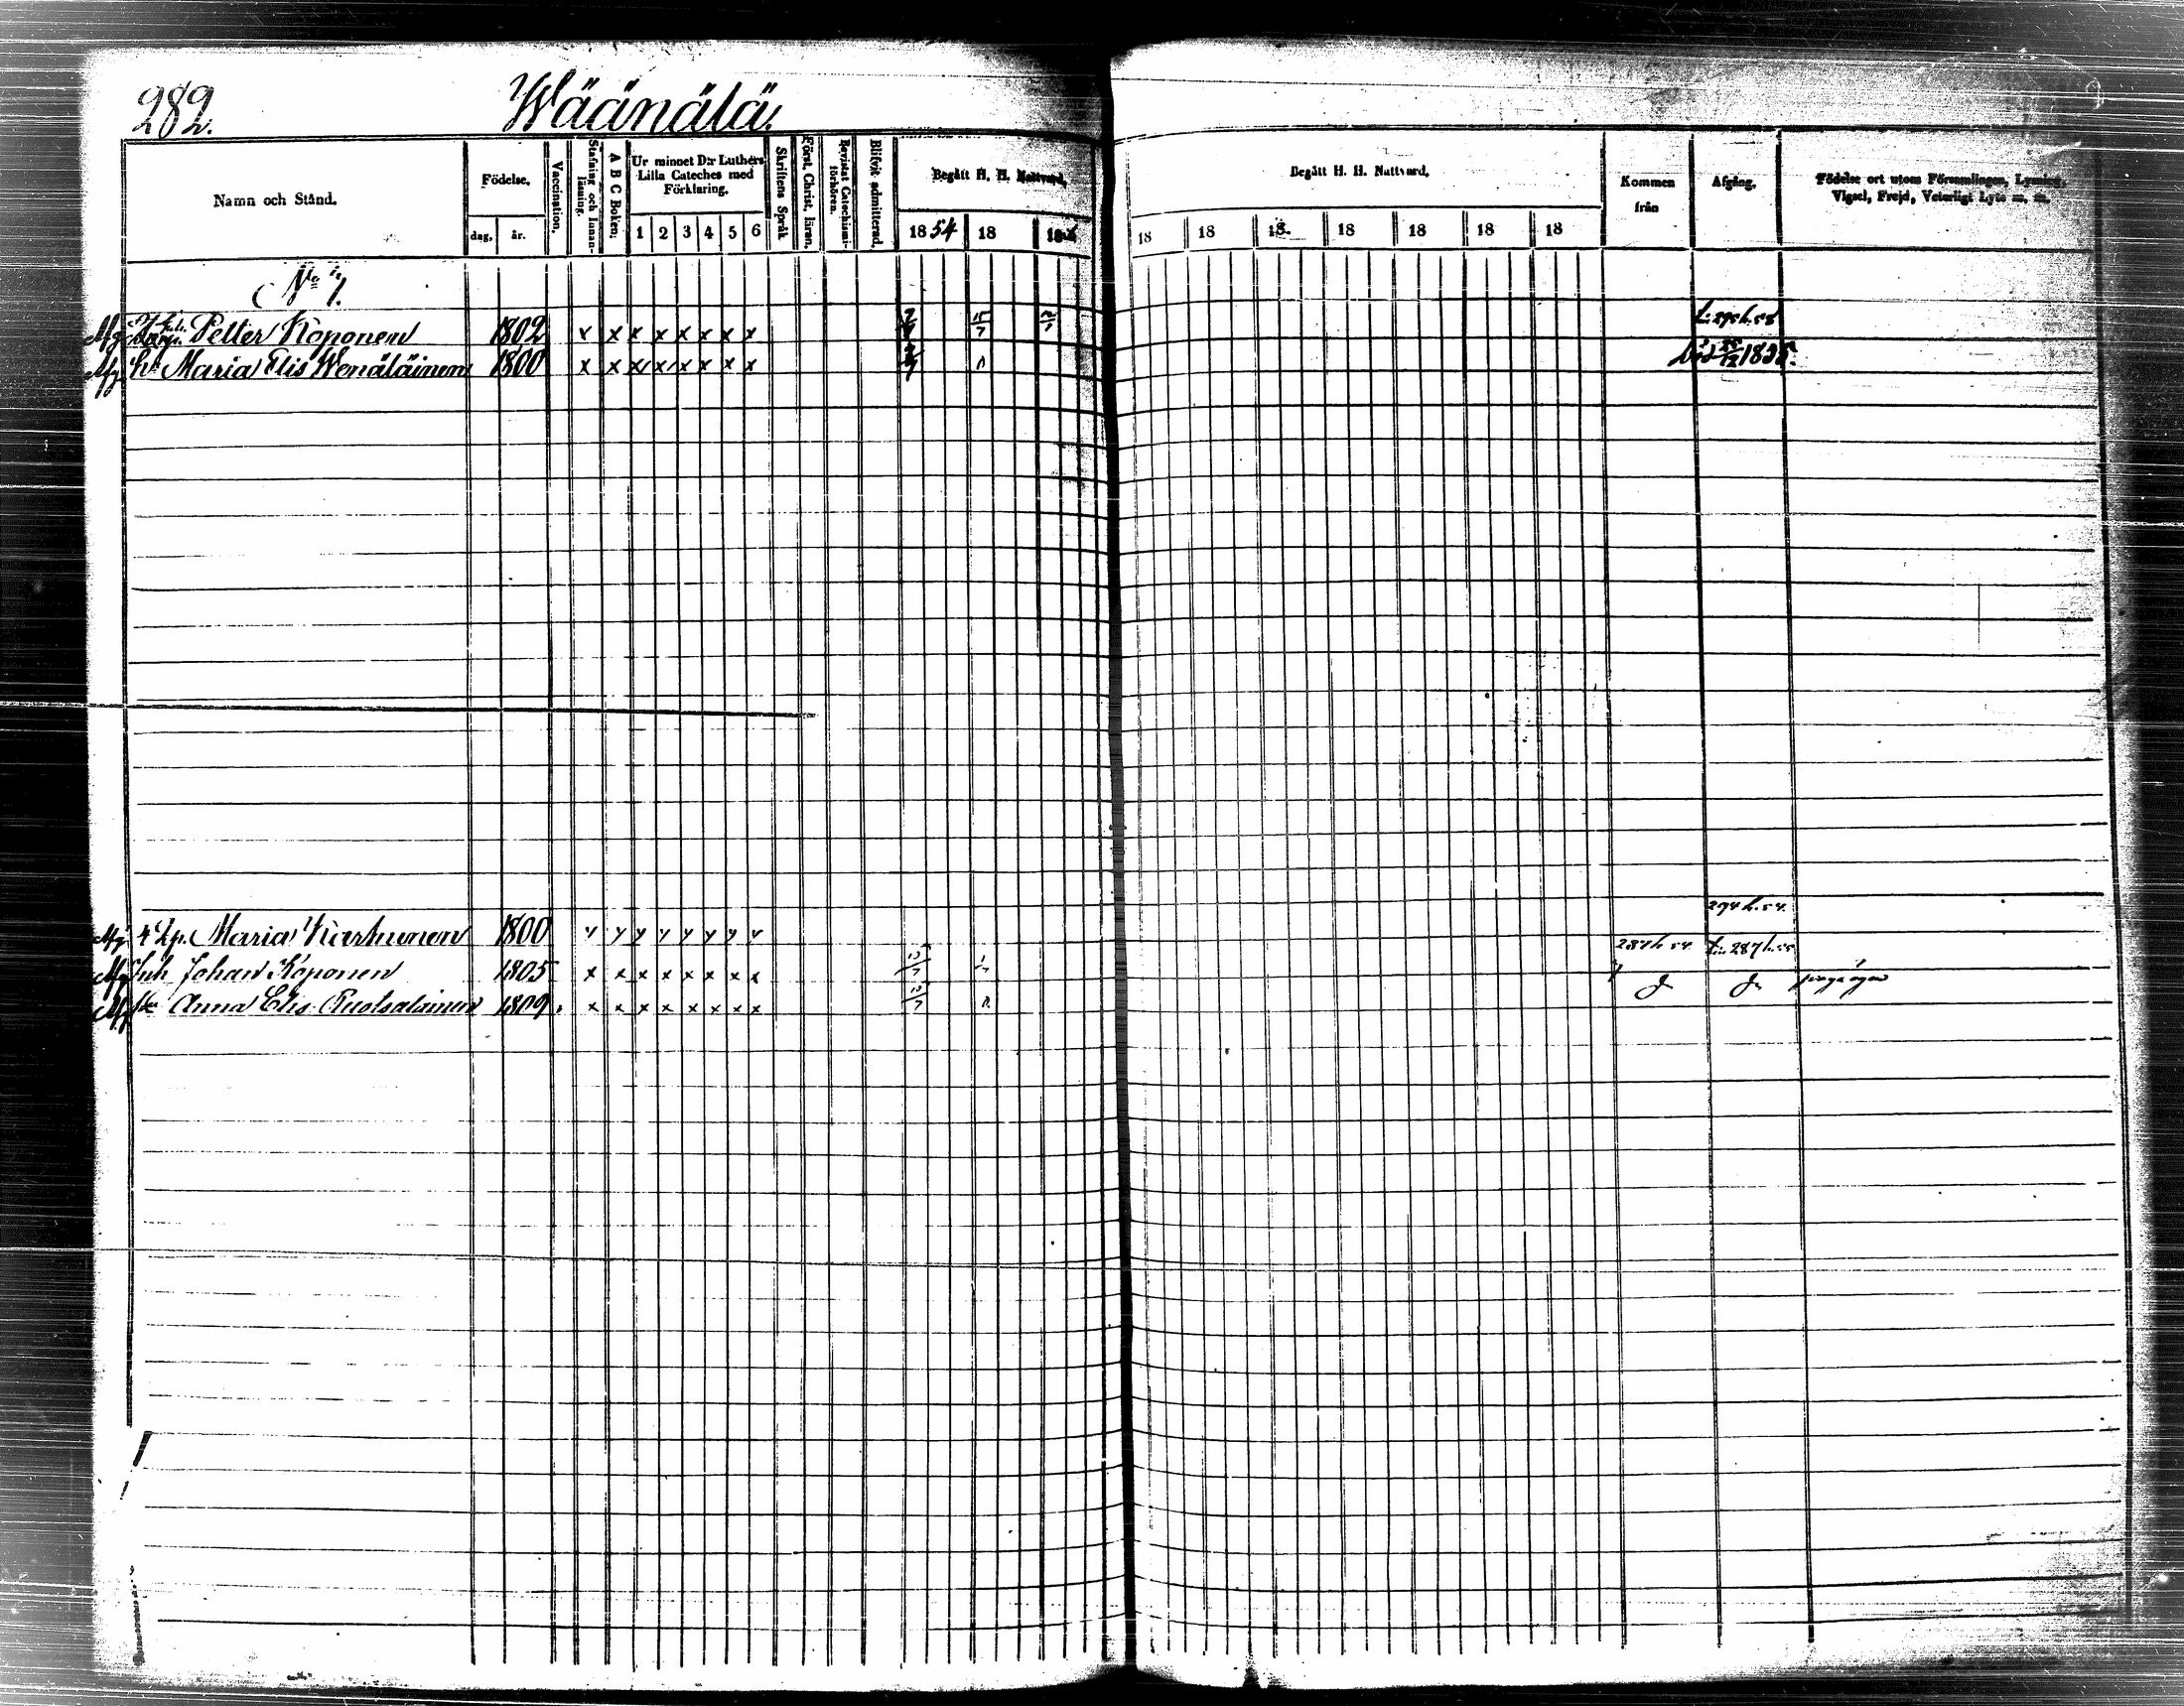 282.
Wäänälä.
Namn och Stånd.
Födelse.
dag. år.
Vaccination.
Stafning och Innan-läsning.
A B C Boken;
Ur minnet D:r Luthers Lilla Cateches med Förklaring.
1 2 3 4 5 6
Skriftens Språk
Först. Christ. läran.
Bevistat Catechismi-förhören.
Blifvit admitterad.
Begått H. H. Nattvard.
18 54 18 18
Begått H. H. Nattvard.
18 18 18. 18 18 18 18
Kommen från
Afgång.
Födelse ort utom Församlingen, Lysning, Vigsel, Frejd, Veterligt Lyte m. m.
No 7.
Afg Petter Koponen 1802 x x x x x x x x
Afg H. Maria Elis Wenäläinen 1800 x x x x x x x x 25/12 1855.
294 h. 54.
Afg Maria Karhunen 1800
287 h 54. 287 h. 55
Afg Inh Johan Koponen 1805 x x x x x x x x
Afg Anna Elis Ruotsalainen 1809. x x x x x x x x